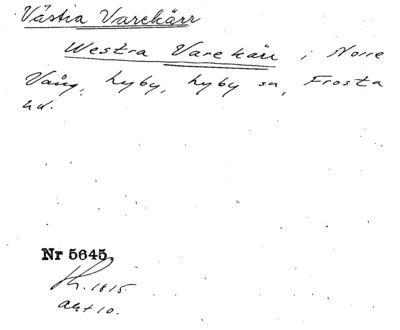 Västra Varekärr
Westra Varekärr i Norre
Vång, Hyby, Hyby sn,
hd.
Nr 5645
1815.
akt 10.